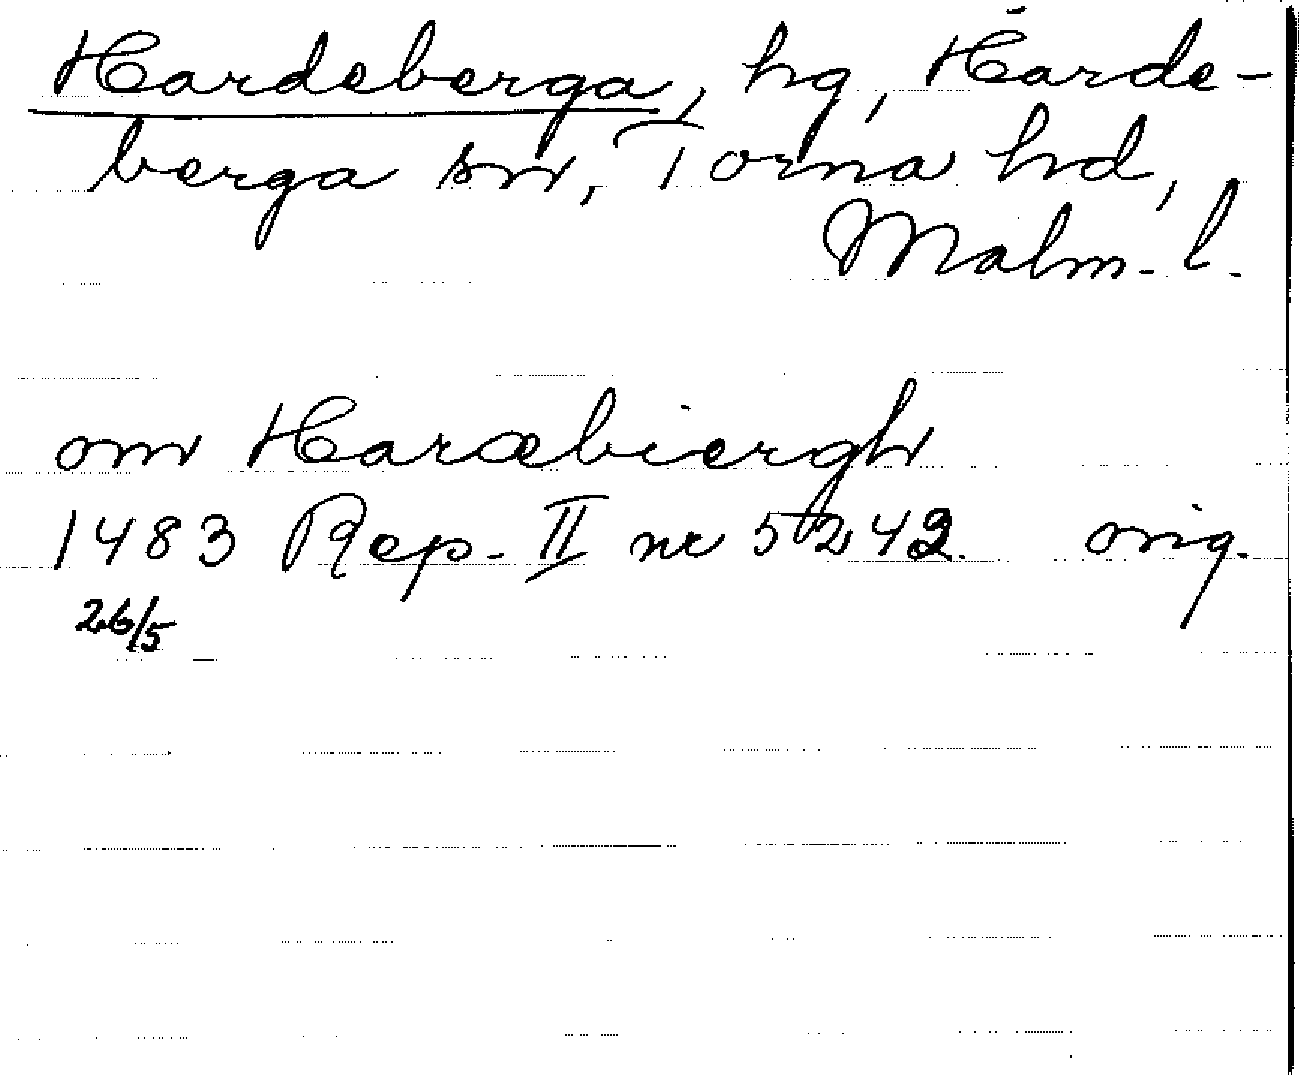 Hardeberga, hg, Harde-
berga sn, Torna hd,
Malm. l.
om Haræbiergh
1483 Rep. II nr 5242. orig.
26/5